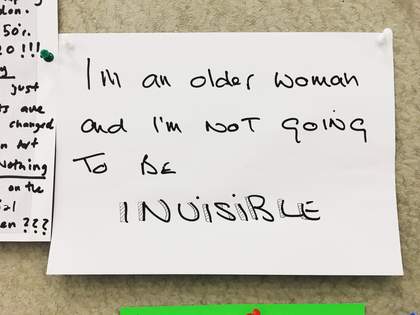 don.
50's.
0!!!
just
ts are
changed
n Art
Nothing
on the
ial
en???
I'm an older woman
and I'm NOT GOING
TO BE
INVISIBLE